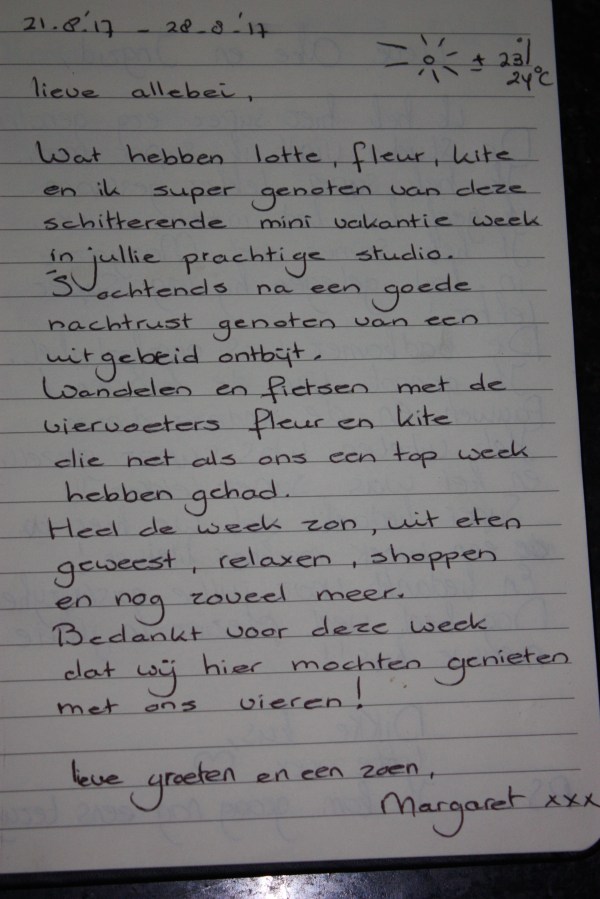 21.8.'17 - 28-8-'17
± 23/
24°C
lieve allebei,
Wat hebben lotte, fleur, kite
en ik super genoten van deze
schitterende mini vakantie week
in jullie prachtige studio.
'S ochtends na een goede
nachtrust genoten van een
uitgebeid ontbijt.
Wandelen en fietsen met de
viervoeters fleur en kite
die net als ons een top week
hebben gehad.
Heel de week zon, uit eten
geweest, relaxen, shoppen
en nog zoveel meer.
Bedankt voor deze week
dat wij hier mochten genieten
met ons vieren!
lieve groeten en een zoen,
Margaret xxx